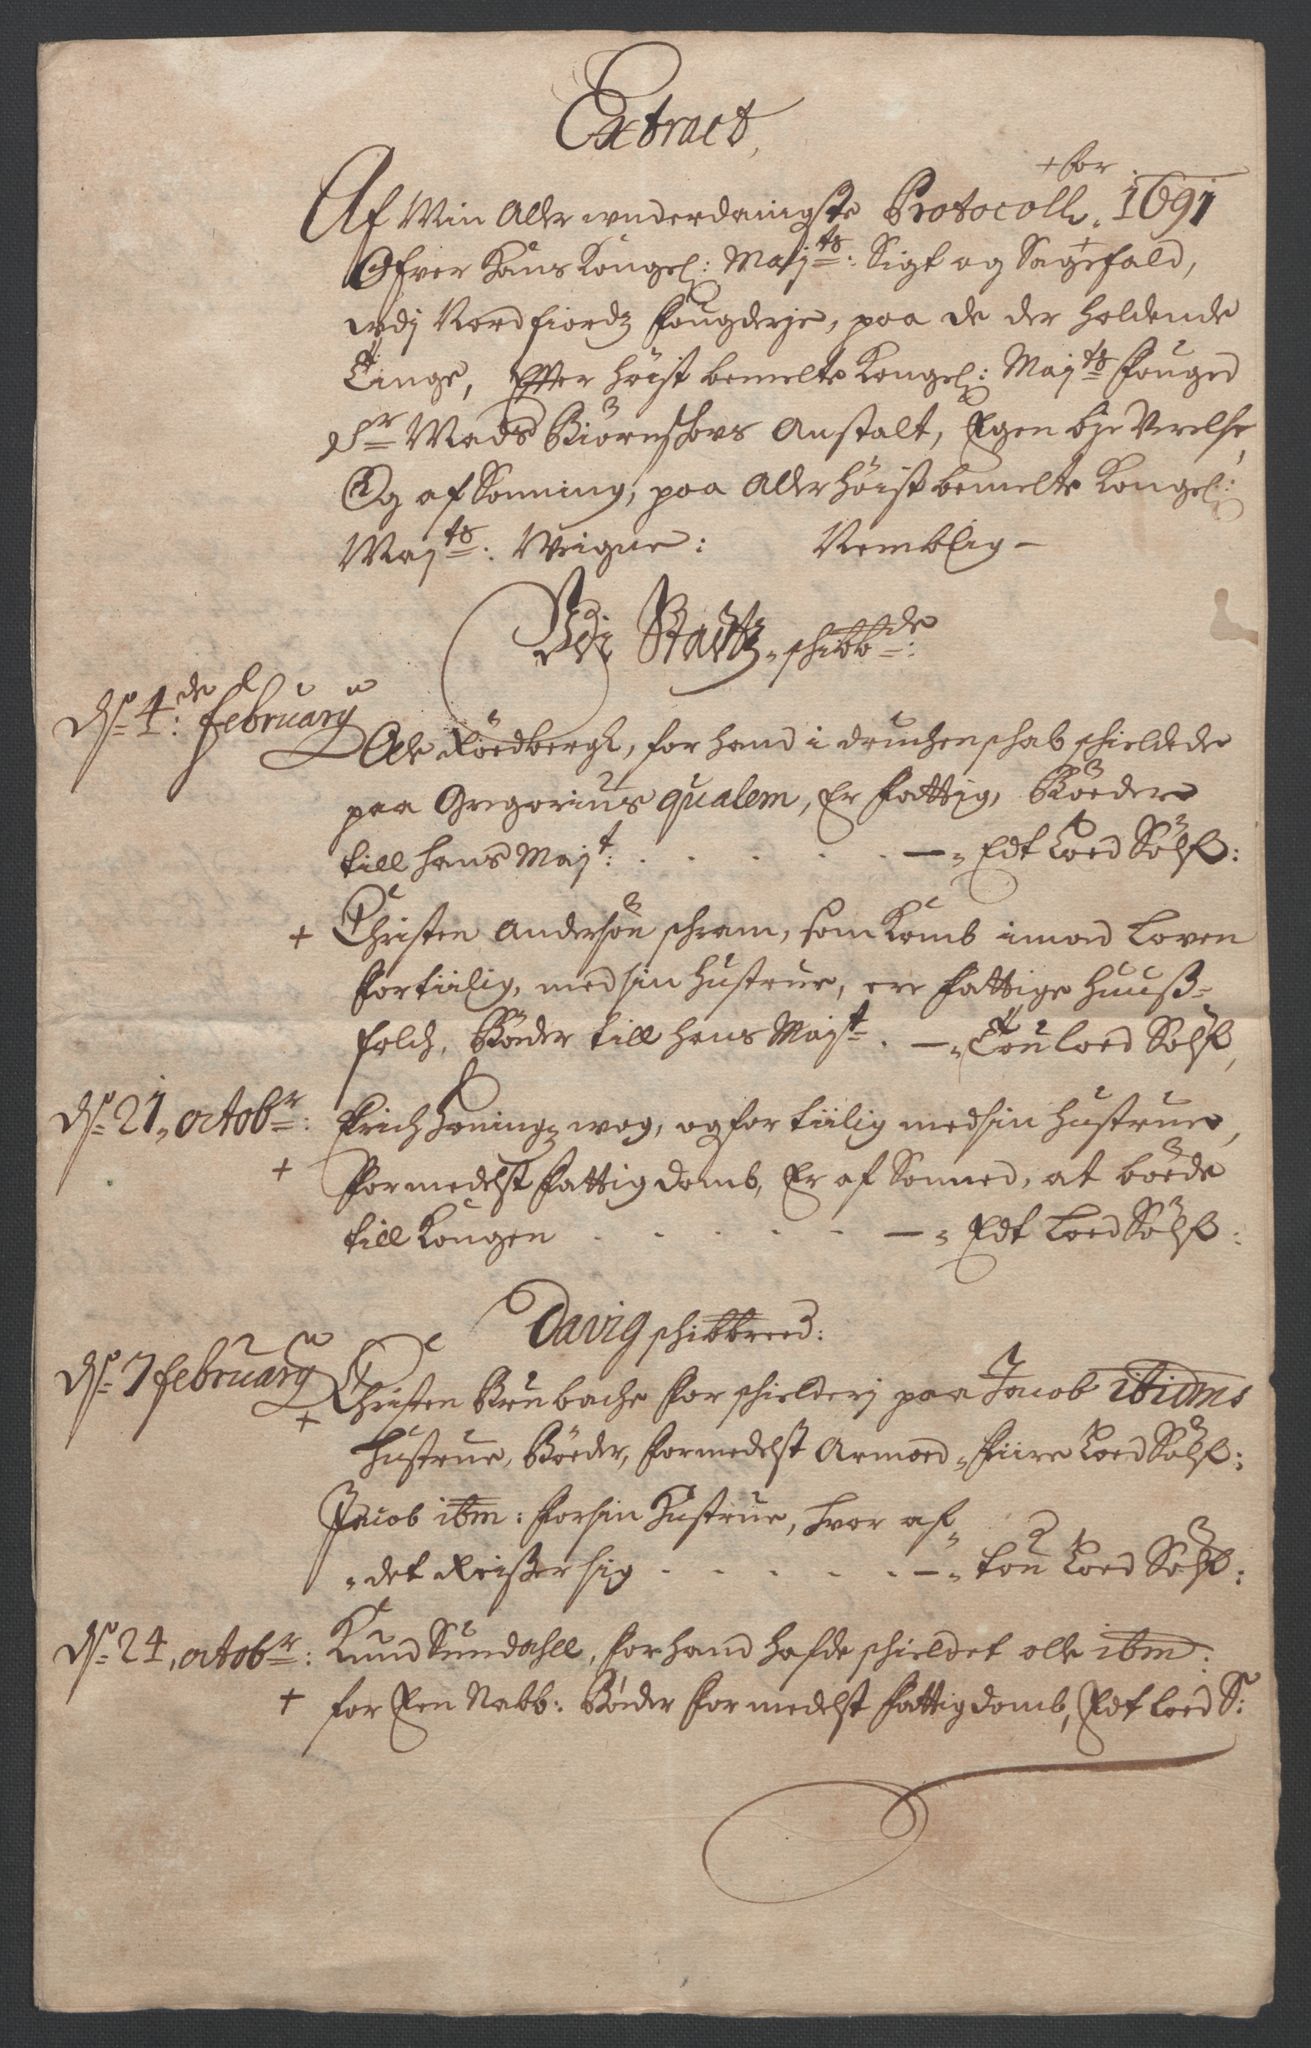 Extract,
+ for
Af Min Aller underdanigste Protocoll, 1691
Ofver Hans Kongel: Maj^ts: Sigt og Sagefald,
udj Nordfiordz fougderje, paa de der holdende
Tinge, Effter høist bemelte Kongel: Maj^ts fouged
S^r Mads Biørnshovs Anstalt, Egen
Og afsonning, paa Aller høist bemelte Kongel:
Maj^ts: Weigne: Nemblig -
Vdj Stadtz schibb^de:
D: 4^de february
Ole Røedbergh, for hand i druchenschab schieldede
paa Gregorius qualem, Er fattig, Bøeder
till hans Maj^t: . . . . . - Edt Loed Sølf:
+ Christen Andersøn schram, som Komb imod Loven
for tiilig, med sin hustrue, ere fattige huuß-
folch, Bøder till hans Maj^t . - Tou loed Sølf,
D: 21, octob^r: Erich Heningz wog, og for tiilig med sin hustrue,
+ Formedelst fattigdomb, Er afsonned, at bøede
till Kongen . . . . . - Edt Loed Sølf:
Davig schibbreed:
D: 7 february
+ Christen Brubache for schielderj paa Jacob ibidms
Hustrue, Bøeder, formedelst Armoed - fiire Loed Sølf:
Jacob ibm: for sin Hustrue, hvor af
det Reißer sig . . . . . - tou Loed Sølf:
D: 24, octob^r: Knud Sundahll, for hand hafde schieldet olle ibm:
+ for Een Nabb: Bøder formedelst fattigdomb, Edt loed S: